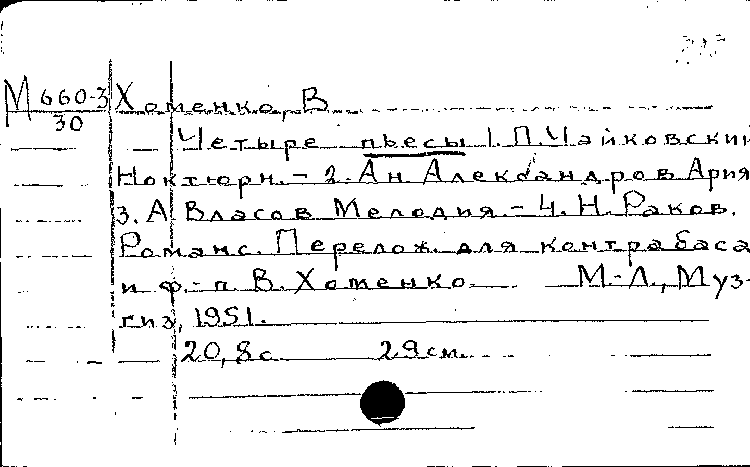 М 660-3 Хоменко, В
30
Четыре пьесы 1. П. Чайковский
Ноктюрн. - 2. Ан Александров Ария
3. А Власов Мелодия - 4. Н. Раков.
Романс. Перелож. для контрабаса
и ф.-п. В. Хоменко. М.-Л., Муз-
гиз, 1951.
20, 8 с. 29 см.